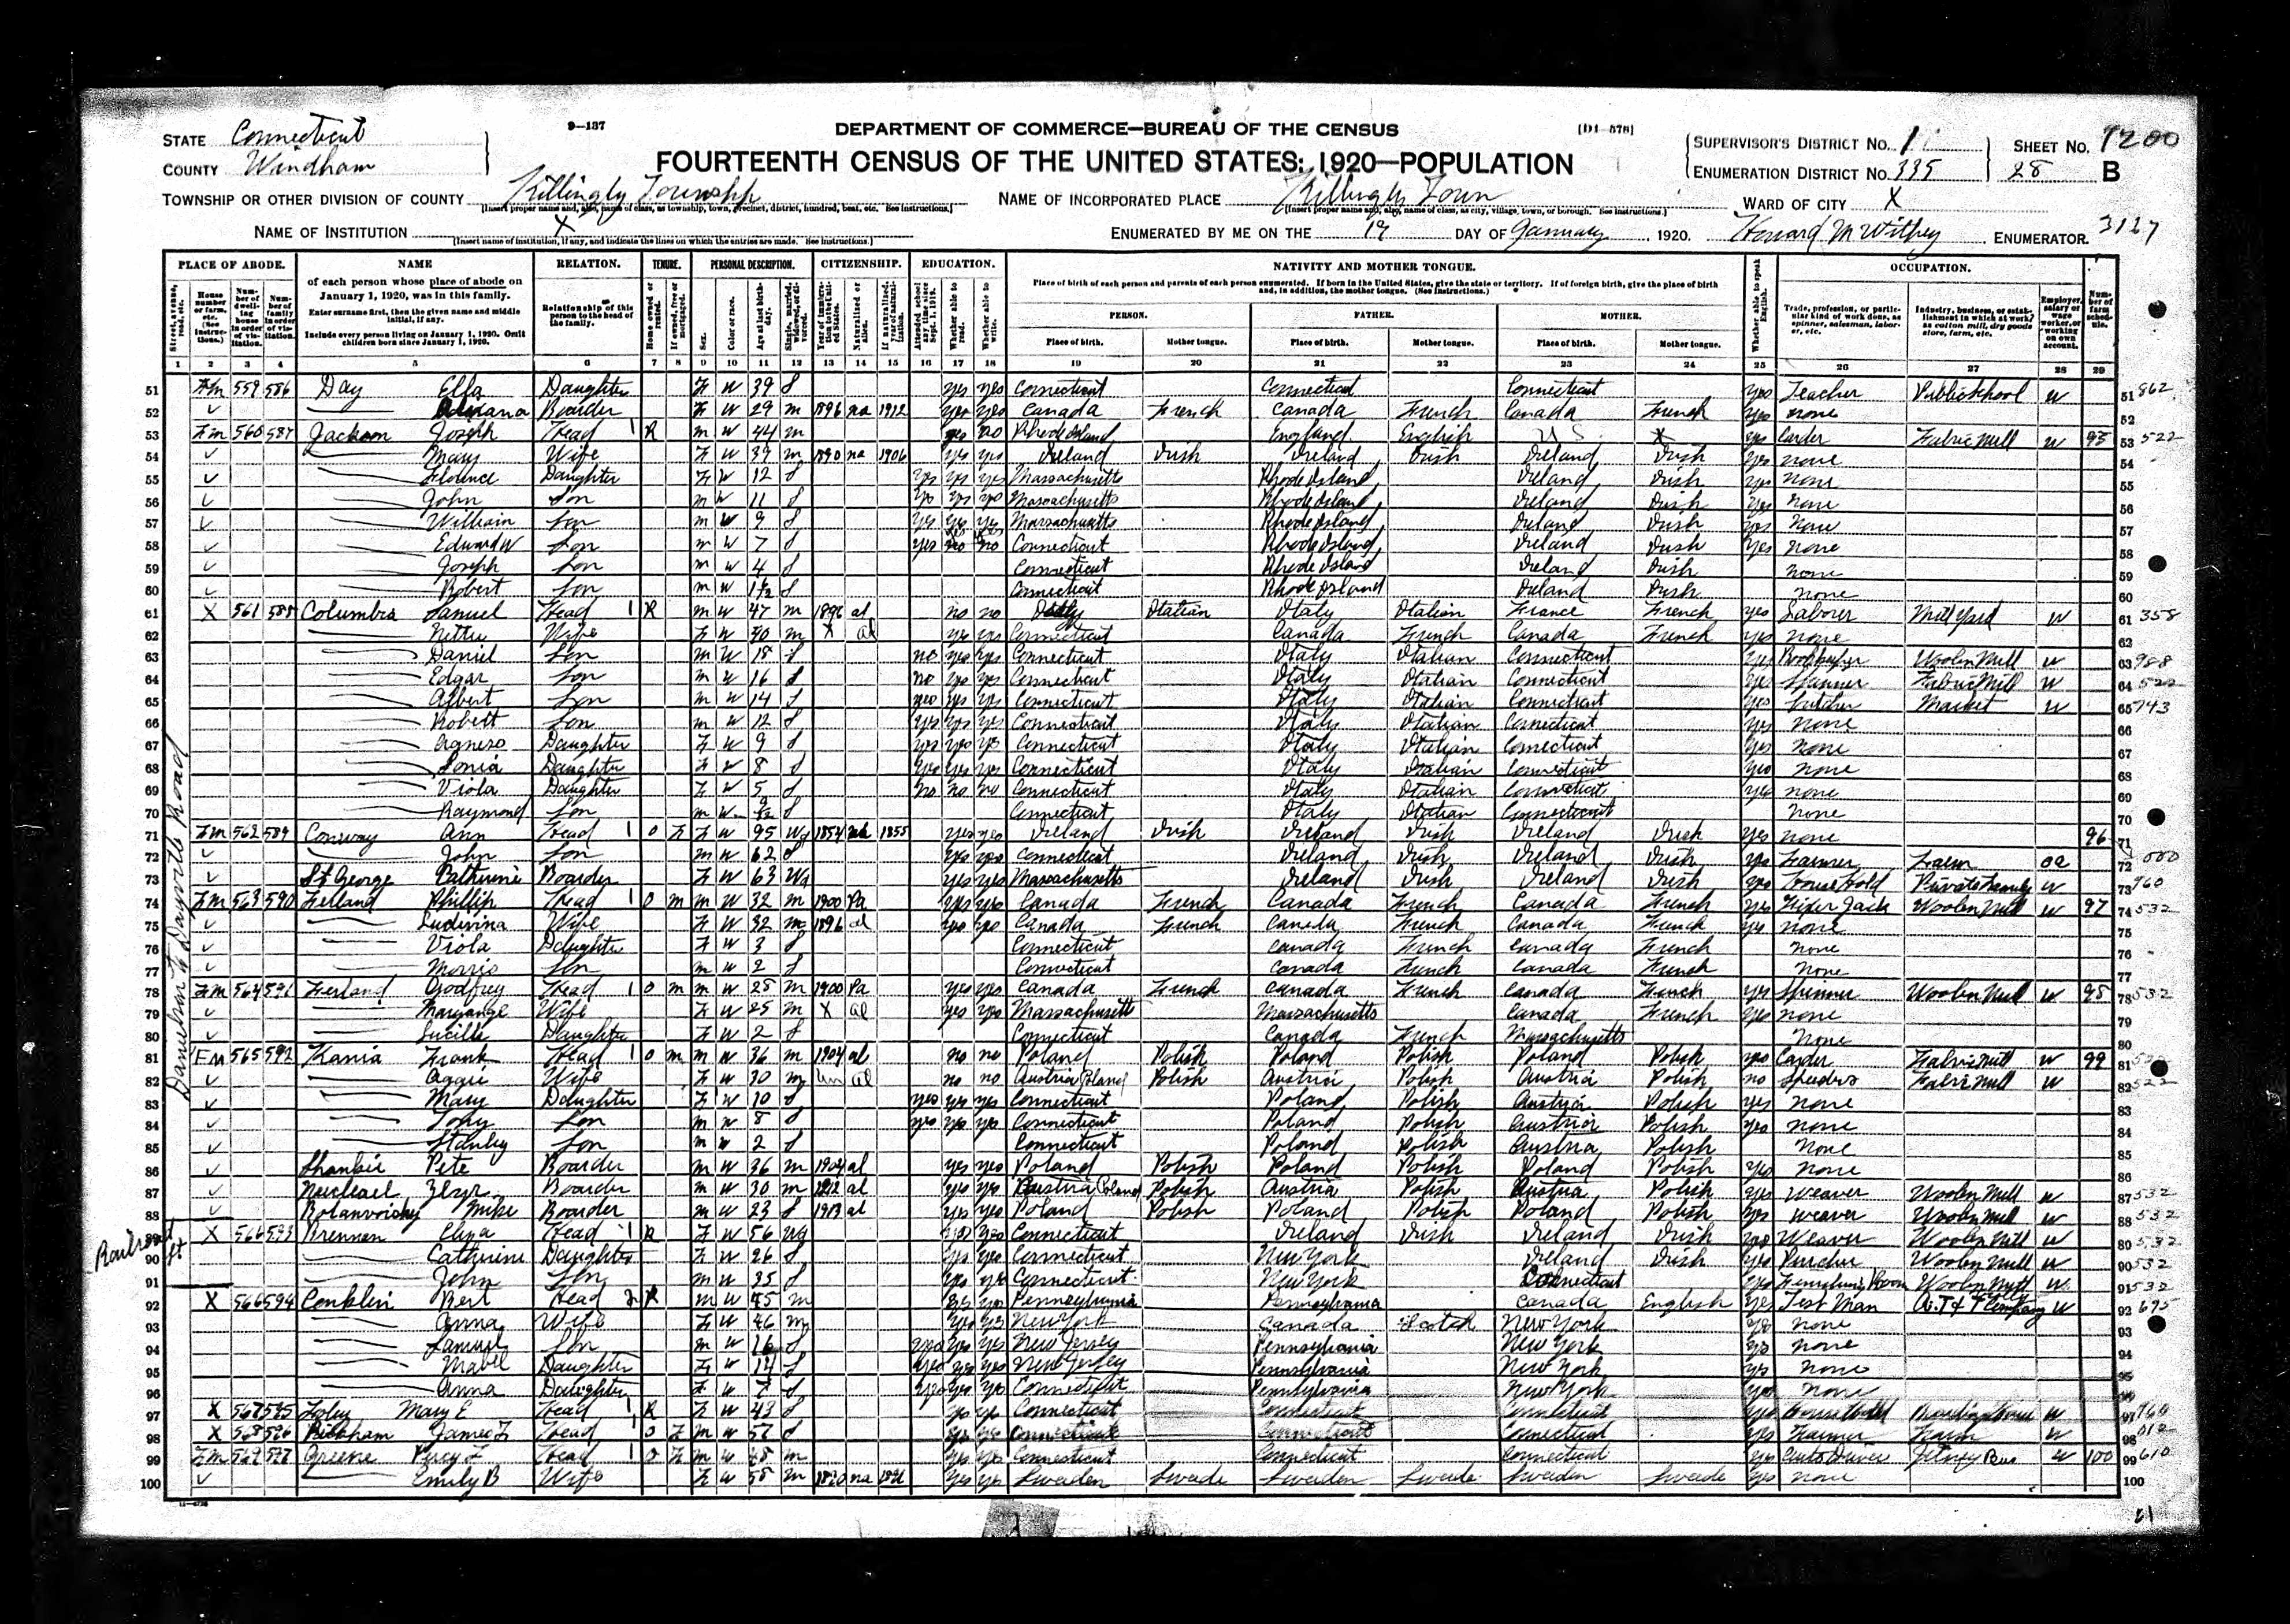 STATE Connecticut
COUNTY Windham
9-137
DEPARTMENT OF COMMERCE—BUREAU OF THE CENSUS
[D1-578]
FOURTEENTH CENSUS OF THE UNITED STATES: 1920—POPULATION
SUPERVISOR'S DISTRICT No. 1
ENUMERATION DISTRICT No. 335
SHEET No. 28 B
7200
TOWNSHIP OR OTHER DIVISION OF COUNTY Killingly Township
NAME OF INCORPORATED PLACE Killingly Town
WARD OF CITY X
NAME OF INSTITUTION X
ENUMERATED BY ME ON THE 19 DAY OF January, 1920. Howard M Withey ENUMERATOR.
3127
PLACE OF ABODE. NAME RELATION. TENURE. PERSONAL DESCRIPTION. CITIZENSHIP. EDUCATION. NATIVITY AND MOTHER TONGUE. OCCUPATION.
of each person whose place of abode on January 1, 1920, was in this family.
Enter surname first, then the given name and middle initial, if any.
Include every person living on January 1, 1920. Omit children born since January 1, 1920.
Relationship of this person to the head of the family.
Place of birth of each person and parents of each person enumerated. If born in the United States, give the state or territory. If of foreign birth, give the place of birth and, in addition, the mother tongue. (See Instructions.)
PERSON. FATHER. MOTHER.
Place of birth. Mother tongue. Place of birth. Mother tongue. Place of birth. Mother tongue.
1 2 3 4 5 6 7 8 9 10 11 12 13 14 15 16 17 18 19 20 21 22 23 24 25 26 27 28 29
Danielson to Dayville Road
51 Fm 559 586 Day Ella Daughter F W 39 S yes yes Connecticut Connecticut Connecticut yes Teacher Public School W 862
52 Boarder F W 29 m 1896 na 1912 yes yes Canada French Canada French Canada French yes none
53 Fm 560 587 Jackson Joseph Head 1 R m W 44 m yes no Rhode Island England English U S X yes Carder Fabric Mill W 95 522
54 Mary Wife F W 39 m 1890 na 1906 yes yes Ireland Irish Ireland Irish Ireland Irish yes none
55 Florence Daughter F W 12 S yes yes yes Massachusetts Rhode Island Ireland Irish yes none
56 John Son m W 11 S yes yes yes Massachusetts Rhode Island Ireland Irish yes none
57 William Son m W 9 S yes yes yes Massachusetts Rhode Island Ireland Irish yes none
58 Edward W Son m W 7 S yes no no Connecticut Rhode Island Ireland Irish yes none
59 Joseph Son m W 4 S Connecticut Rhode Island Ireland Irish none
60 Robert Son m W S Connecticut Rhode Island Ireland Irish none
61 X 561 588 Columbia Samuel Head 1 R m W 47 m 1896 al no no Italy Italian Italy Italian France French yes Laborer Mill Yard W 358
62 Wife F W 40 m X al yes yes Connecticut Canada French Canada French yes none
63 Daniel Son m W 18 S no yes yes Connecticut Italy Italian Connecticut yes Bookkeeper Woolen Mill W 988
64 Edgar Son m W 16 S no yes yes Connecticut Italy Italian Connecticut yes Spinner Fabric Mill W 522
65 Albert Son m W 14 S yes yes Connecticut Italy Italian Connecticut yes butcher Market W 743
66 Robert Son m W 12 S yes yes yes Connecticut Italy Italian Connecticut yes none
67 Daughter F W 9 S yes yes yes Connecticut Italy Italian Connecticut yes none
68 Sonia Daughter F W 8 S yes yes yes Connecticut Italy Italian Connecticut yes none
69 Viola Daughter F W 5 S no no no Connecticut Italy Italian Connecticut yes none
70 Raymond Son m W S Connecticut Italy Italian Connecticut none
71 Fm 562 589 Conway Ann Head 1 O F F W 95 Wd 1854 na 1855 yes yes Ireland Irish Ireland Irish Ireland Irish yes none 96
72 John Son m W 62 S yes yes Connecticut Ireland Irish Ireland Irish yes Farmer Farm oa 000
73 St George Catherine Boarder F W 63 Wd yes yes Massachusetts Ireland Irish Ireland Irish yes House Hold Private Family W 960
74 Fm 563 590 Ferland Phillip Head 1 O m m W 32 m 1900 Pa yes yes Canada French Canada French Canada French yes Woolen Mill W 97 532
75 Ludivina Wife F W 32 m 1896 al yes yes Canada French Canada French Canada French yes none
76 Viola Daughter F W 3 S Connecticut Canada French Canada French none
77 Morris Son m W 2 S Connecticut Canada French Canada French none
78 Fm 564 591 Ferland Godfrey Head 1 O m m W 28 m 1900 Pa yes yes Canada French Canada French Canada French yes Spinner Woolen Mill W 98 532
79 Maryange Wife F W 25 m X al yes yes Massachusetts Massachusetts Canada French yes none
80 Lucille Daughter F W 2 S Connecticut Canada French Massachusetts None
81 Fm 565 592 Kania Frank Head 1 O m m W 36 m 1904 al no no Poland Polish Poland Polish Poland Polish yes Carder Fabric Mill W 99
82 Aggie Wife F W 30 m un al no no Austria Poland Polish Austria Polish Austria Polish no Speeders Fabric Mill W 522
83 Mary Daughter F W 10 S yes yes yes Connecticut Poland Polish Austria Polish yes none
84 Tony Son m W 8 S yes yes yes Connecticut Poland Polish Austria Polish yes none
85 Stanley Son m W 2 S Connecticut Poland Polish Austria Polish None
86 Pete Boarder m W 36 m 1904 al yes yes Poland Polish Poland Polish Poland Polish yes none
87 Boarder m W 30 m 1912 al yes yes Austria Poland Polish Austria Polish Austria Polish yes Weaver Woolen Mill W 532
88 Mike Boarder m W 23 S 1913 al yes yes Poland Polish Poland Polish Poland Polish yes weaver Woolen Mill W 532
Railroad St
89 X 566 593 Brennan Eliza Head 1 R F W 56 Wd yes yes Connecticut Ireland Irish Ireland Irish yes Weaver Woolen Mill W 532
90 Catherine Daughter F W 26 S yes yes Connecticut New York Ireland Irish yes Woolen Mill W 532
91 John Son m W 35 S yes yes Connecticut New York Connecticut yes Finishing Room Woolen Mill W 532
92 X 566 594 Conklin Bert Head 2 R m W 45 m yes yes Pennsylvania Pennsylvania Canada English yes Test Man A.T & T Company W 695
93 Anna Wife F W 46 m yes yes New York Canada Scotch New York yes none
94 Samuel Son m W 16 S yes yes yes New Jersey Pennsylvania New York yes none
95 Mabel Daughter F W 14 S yes yes yes New Jersey Pennsylvania New York yes none
96 Anna Daughter F W 7 S yes yes yes Connecticut Pennsylvania New York yes none
97 X 567 595 Foley Mary E Head 1 R F W 43 S yes yes Connecticut Connecticut Connecticut yes Household Boarding House W 960
98 X 568 596 James F Head O F m W 57 S yes yes Connecticut Connecticut Connecticut yes Farmer Farm W 012
99 Fm 569 597 Greene Percy F Head 1 O F m W 48 m yes yes Connecticut Connecticut Connecticut yes Auto Driver Jitney Bus W 100 610
100 Emily B Wife F W 58 m na yes yes Sweden Swede Sweden Swede Sweden Swede yes none